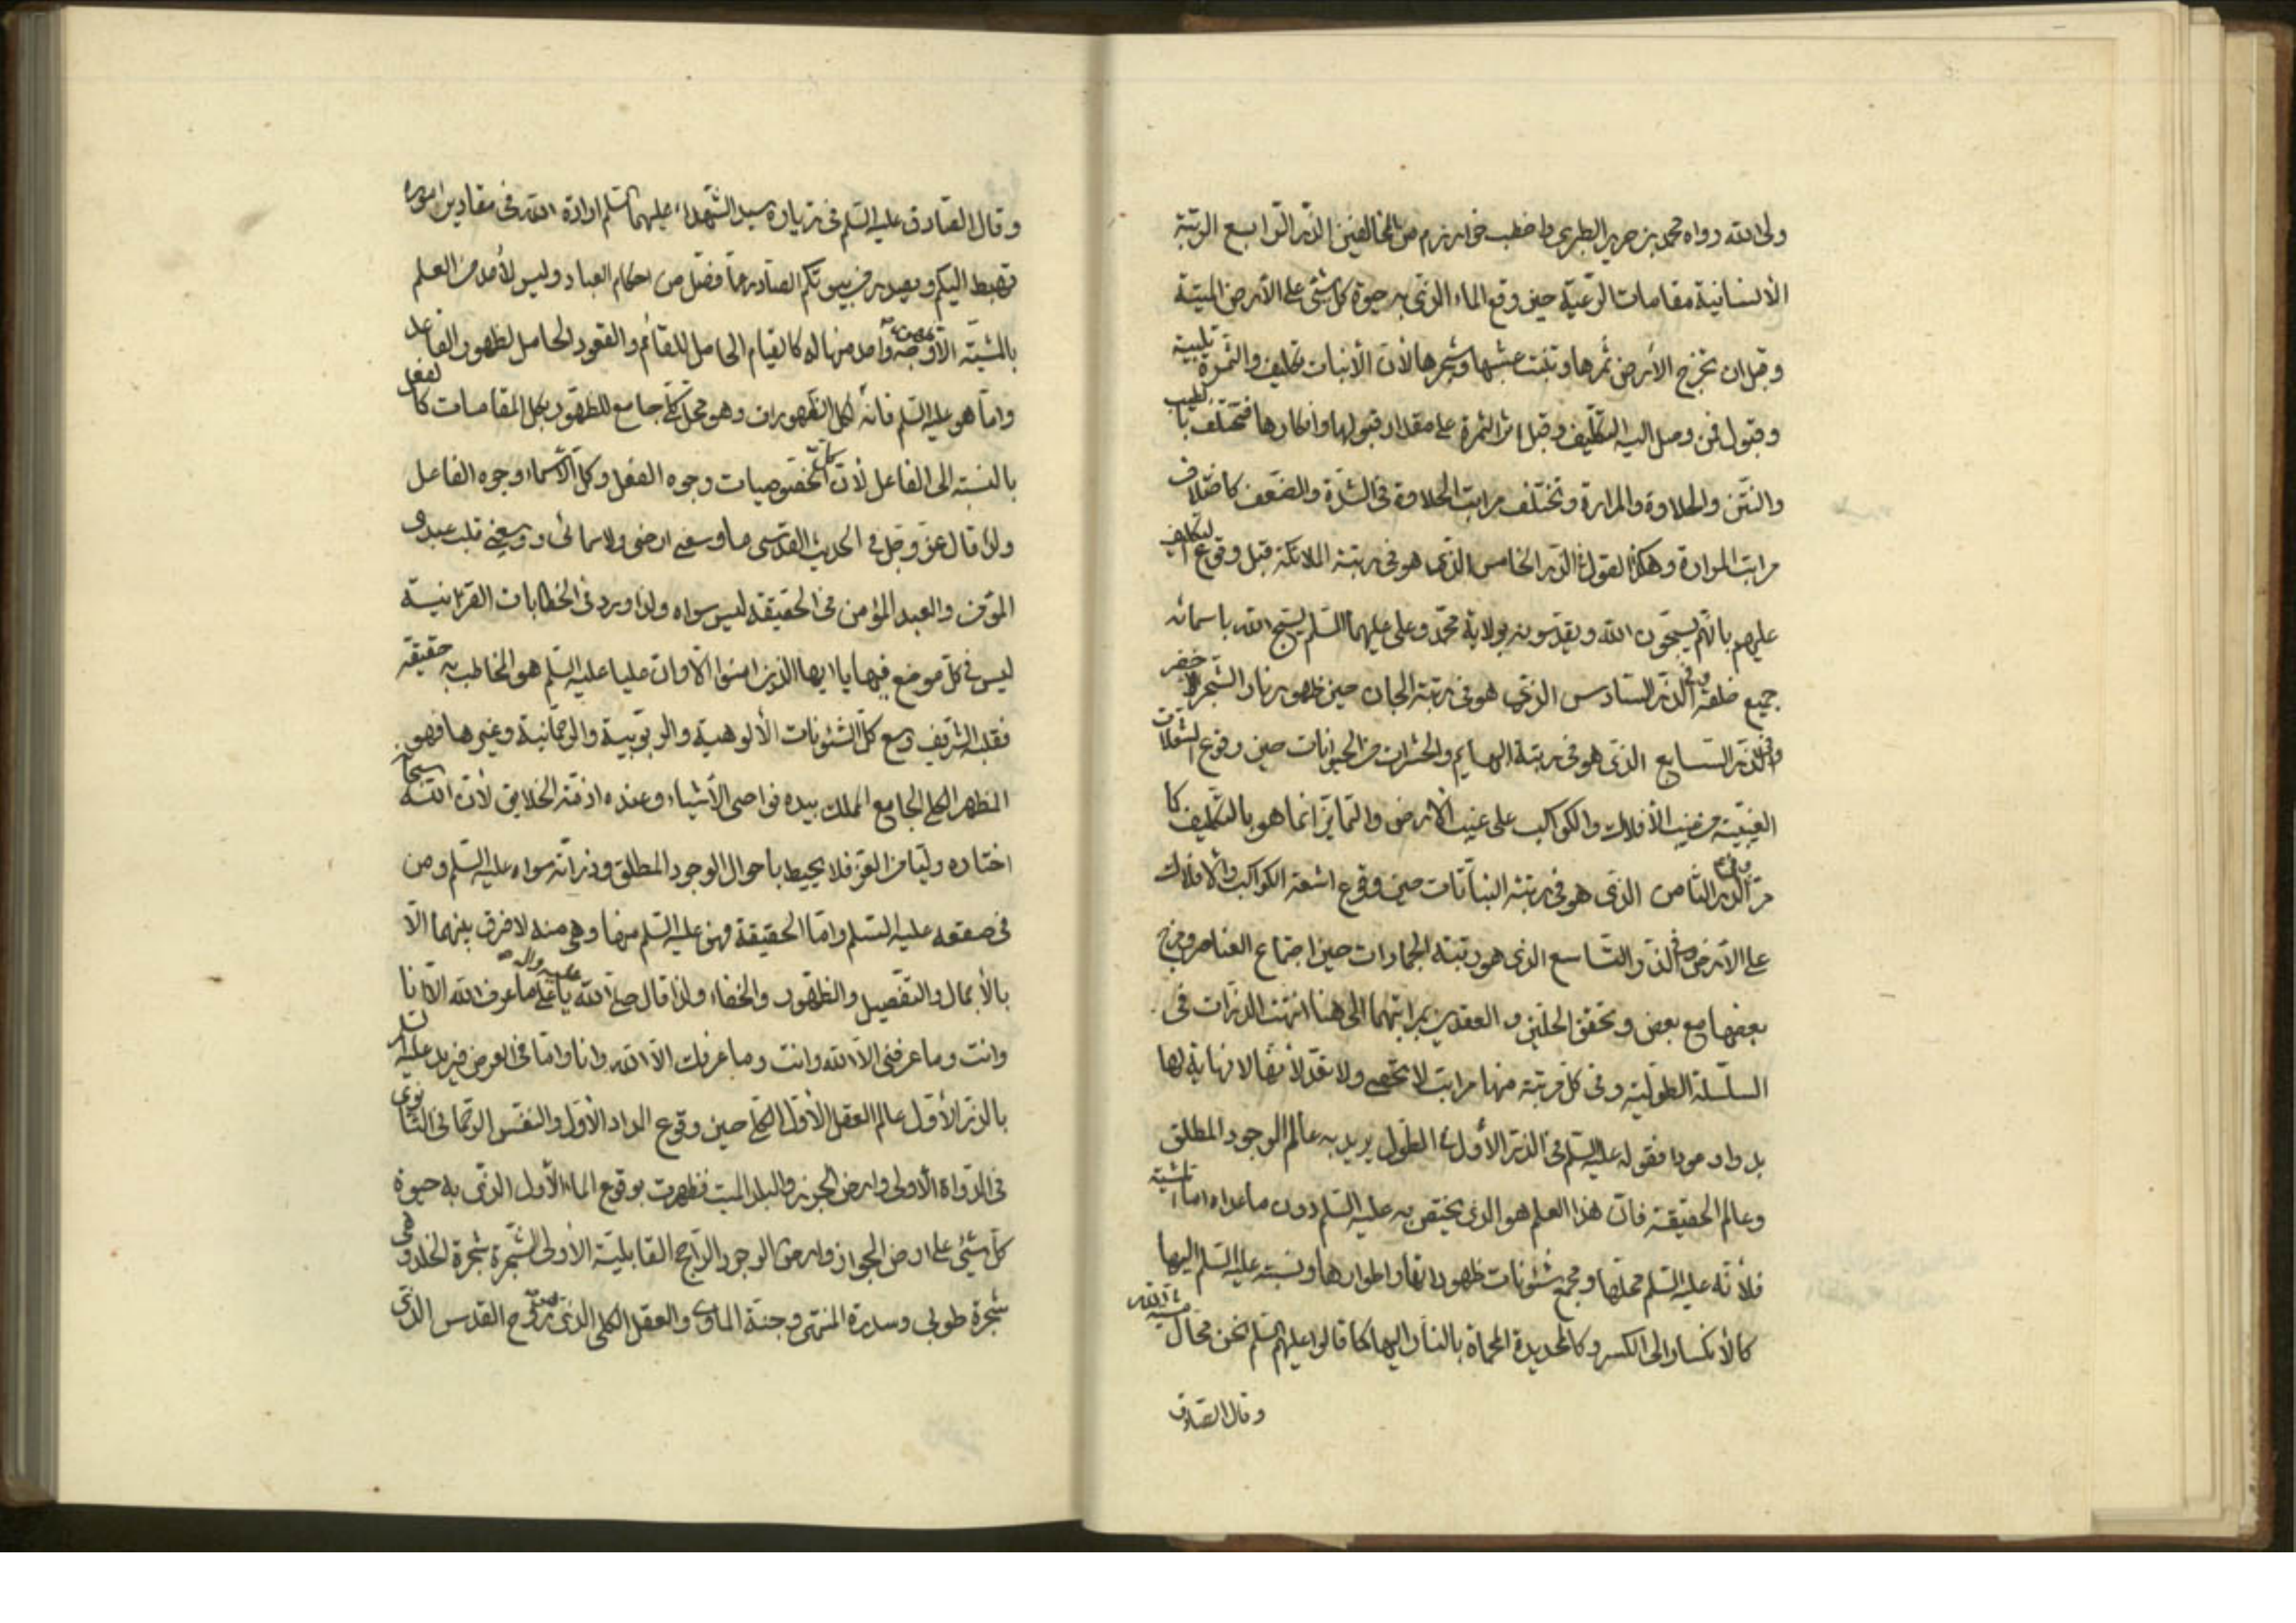 ولی الله رواه محمد بن جرير الطبری واخطب خوارزم من المخالفين الذر الرابع الرتبة
الأنسانية مقامات الرعية حين وقع الماء الذی به حيوة كل شئ علی الأرض الميتة
وقبل ان تخرج الأرض ثمرها وتنبت عشبها وشجرها لأن الأنبات تكليف والثمرة تلبية
وقبول فمن وصل اليه التكليف وقبل اثر الثمرة علی مقدار قبولها وانكارها فتختلف بالطيب
والنتن والحلاوة والمرارة وتختلف مراتب الحلاوة فی الشدة والضعف كاختلاف
مراتب المرارة وهكذا القول فی الذر الخامس الذی هو فی رتبة الملائكة قبل وقوع التكليف
عليهم بانهم يسبحون الله ويقدسونه بولاية محمد وعلی عليهما السلم يسبح الله باسمائه
جميع خلقه وفی الذر السادس الذی هو فی رتبة الجان حين ظهور نار الشجر الاخضر
وفی الذر السابع الذی هو فی رتبة البهايم والحشرات من الحيوانات حين وقوع
الغيبية من غيب الأفلاك والكواكب علی غيب الأرض والتمايز انما هو بالتكليف كما
مر وفی الذر الثامن الذی هو فی رتبة النباتات حين وقوع اشعة الكواكب والافلاك
علی الأرض وفی الذر التاسع الذی هو رتبة الجمادات حين اجتماع العناصر ومزج
بعضها مع بعض وتحقق الحلين والعقدين بمراتبهما الی هنا انتهت الذرات فی
السلسلة الطولية وفی كل مرتبة منها مراتب لا تحصی ولا تعد لأنها لا نهاية لها
فقوله عليه السلم فی الذر الأول فی الطول يريد به عالم الوجود المطلق
وعالم الحقيقة فان هذا العلم هو الذی يختص به عليه السلم دون ما عداه اما المشية
فلأنه عليه السلم محلها ومجمع شئونات ظهوراتها واطوارها ونسبته عليه السلم اليها
كالأنكسار الی الكسر وكالحديدة المحماة بالنار اليها كما قالوا عليهم السلم نحن محال مشية الله
وقال الصادق
وقال الصادق عليه السلم فی زيارة سيد الشهداء عليهما السلم ارادة الله فی مقادير اموره
تهبط اليكم ويصدر من بيوتكم الصادر عما فصل من احكام العباد وليس لأحد من العلم
بالمشية الا وجه واحد منها له كالقيام الحامل للقائم والقعود الحامل لظهور الفاعل
واما هو عليه السلم فانه لكل الظهورات وهو محل كلی جامع للظهور بكل المقامات كالفعل
بالنسبة الی الفاعل لأن كل الخصوصيات وجوه الفعل وكل الأسماء وجوه الفاعل
ولذا قال عز وجل فی الحديث القدسی ما وسعنی ارضی ولا سمائی ووسعنی قلب عبدی
المؤمن والعبد المؤمن فی الحقيقة ليس سواه ولذا ورد فی الخطابات القرآنية
ليس فی كل موضع فيها يا ايها الذين امنوا الا وان عليا عليه السلم هو المخاطب به حقيقة
فقلبه الشريف وسع كل الشئونات الألوهية والربوبية والرحمانية وغيرها فهو
المظهر الكلی الجامع الملك بيده نواصی الأشياء وعنده ازمة الخلايق لأن الله سبحانه
اختاره وليا من العز فلا يحيط باحوال الوجود المطلق وذراته سواه عليه السلم ومن
فی صقعه عليه السلم واما الحقيقة فهو عليه السلم منها وهی منه لا فرق بينهما الا
بالأجمال والتفصيل والظهور والخفاء ولذا قال صلی الله عليه واله يا علی ما عرف الله الا انا
وانت وما عرفنی الا الله وانت وما عرفك الا الله وانا واما فی العرض فيريد عليه السلم
بالذر الأول عالم العقل الأول الكلی حين وقوع المداد الأول والنفس الرحمانی الثانوی
فی الدواة الأولی وارض الجرز والبلد الميت فظهرت بوقوع الماء الأول الذی به حيوة
كل شئ علی ارض الجواز وارض الوجود الراجح القابلية الأولی الشجرة شجرة الخلد وهی
شجرة طوبی وسدرة المنتهی وجنة الماوی والعقل الكلی الذی هو روح القدس الذی